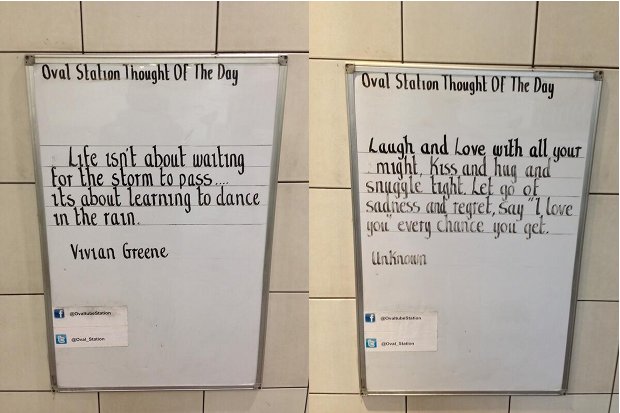 Oval Station Thought Of The Day
Life isn't about waiting
for the storm to pass....
its about learning to dance
in the rain.
Vivian Greene
@OvaltubeStation
@Oval_Station
Oval Station Thought Of The Day
Laugh and Love with all your
might, Kiss and hug and
snuggle tight. Let go of
sadness and regret, say "I love
you" every chance you get.
Unknown
@OvaltubeStation
@Oval_Station